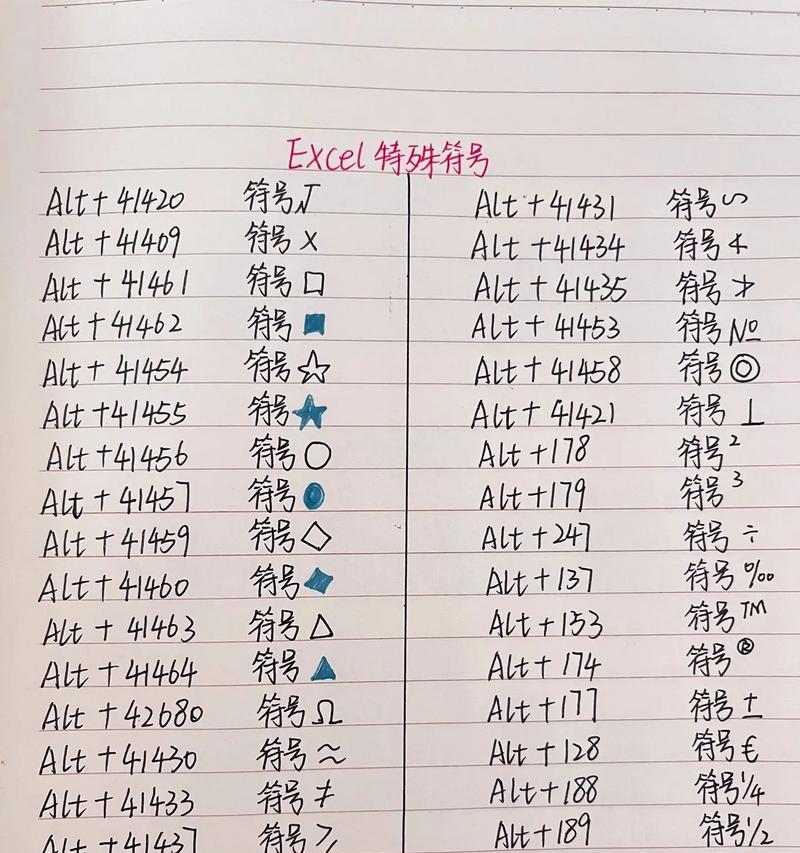 Excel 特殊符号
Alt + 41420 符号√
Alt + 41409 符号×
Alt + 41461 符号□
Alt + 41462 符号■
Alt + 41454 符号☆
Alt + 41455 符号★
Alt + 41456 符号○
Alt + 41457 符号●
Alt + 41459 符号◇
Alt + 41460 符号◆
Alt + 41463 符号△
Alt + 41464 符号▲
Alt + 42680 符号Ω
Alt + 41430 符号≈
Alt + 41433 符号≠
Alt + 41437 符号≥
Alt + 41431 符号∽
Alt + 41434 符号≮
Alt + 41435 符号≯
Alt + 41453 符号№
Alt + 41458 符号◎
Alt + 41421 符号⊥
Alt + 178 符号²
Alt + 179 符号³
Alt + 247 符号÷
Alt + 137 符号‰
Alt + 153 符号™
Alt + 174 符号®
Alt + 177 符号±
Alt + 128 符号€
Alt + 188 符号¼
Alt + 189 符号½